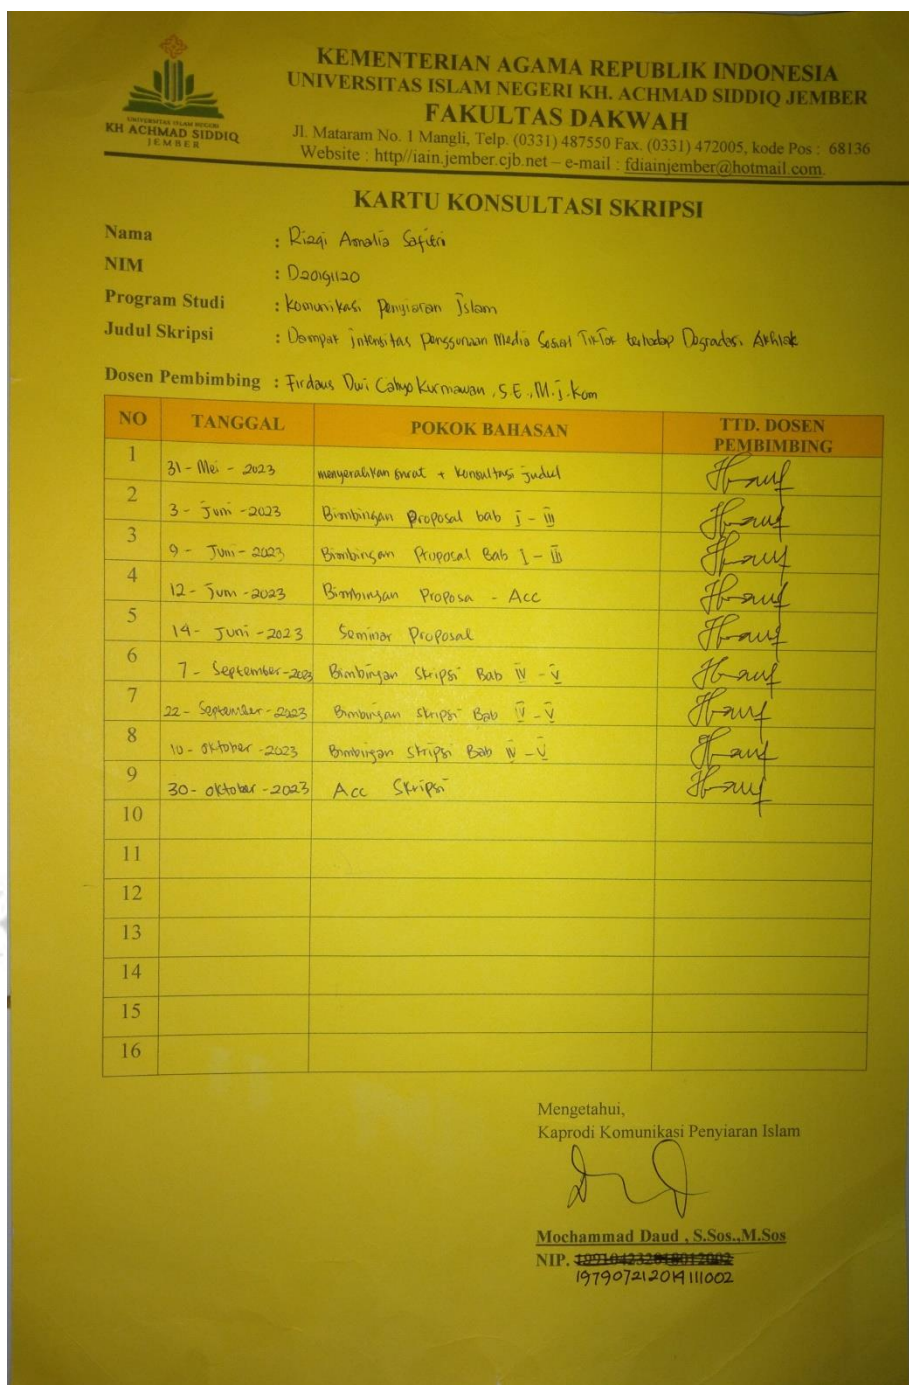 KEMENTERIAN AGAMA REPUBLIK INDONESIA
UNIVERSITAS ISLAM NEGERI KH. ACHMAD SIDDIQ JEMBER
FAKULTAS DAKWAH
Jl. Mataram No. 1 Mangli, Telp. (0331) 487550 Fax. (0331) 472005, kode Pos : 68136
Website : http//iain.jember.cjb.net – e-mail : fdiainjember@hotmail.com.
UNIVERSITAS ISLAM NEGERI
KH ACHMAD SIDDIQ
JEMBER
KARTU KONSULTASI SKRIPSI
Nama : Rizqi Amalia Safitri
NIM : D20191120
Program Studi : Komunikasi Penyiaran Islam
Judul Skripsi : Dampak intensitas Penggunaan Media Sosial TikTok terhadap Degradasi Akhlak
Dosen Pembimbing : Firdaus Dwi Cahyo Kurniawan, S.E., M.I.Kom
NO TANGGAL POKOK BAHASAN TTD. DOSEN PEMBIMBING
1 31 - Mei - 2023 menyerahkan surat + konsultasi judul
2 3 - Juni - 2023 Bimbingan Proposal bab I - III
3 9 - Juni - 2023 Bimbingan Proposal Bab I - III
4 12 - Juni - 2023 Bimbingan Proposa - Acc
5 14 - Juni - 2023 Seminar Proposal
6 7 - September - 2023 Bimbingan Skripsi Bab IV - V
7 22 - September - 2023 Bimbingan skripsi Bab V - V
8 10 - oktober - 2023 Bimbingan skripsi Bab IV - V
9 30 - oktober - 2023 Acc Skripsi
10
11
12
13
14
15
16
Mengetahui,
Kaprodi Komunikasi Penyiaran Islam
Mochammad Daud , S.Sos.,M.Sos
NIP.
197907212014111002